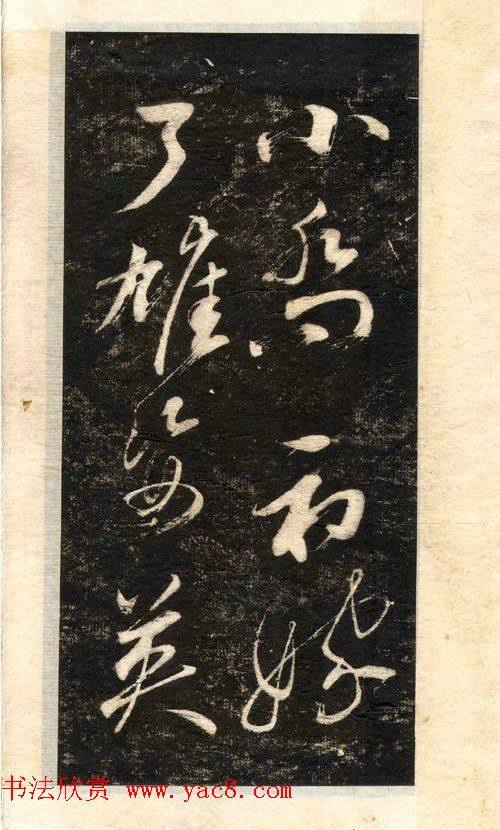 小乔初嫁
了雄姿英
书法欣赏 www.yac8.com